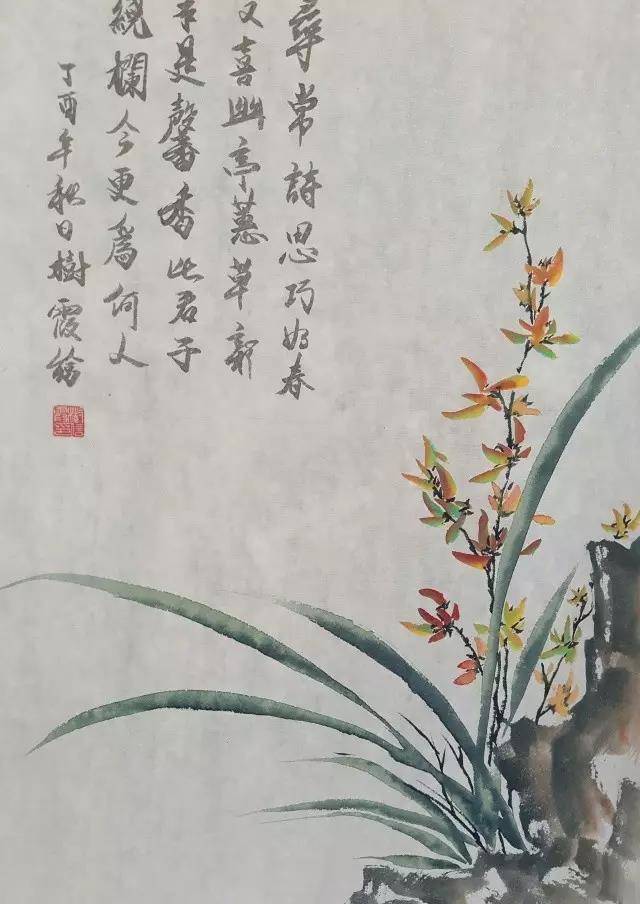 尋常詩思巧如春
又喜幽亭蕙草新
本是馨香比君子
繞欄今更爲何人
丁酉年秋日樹霞繪